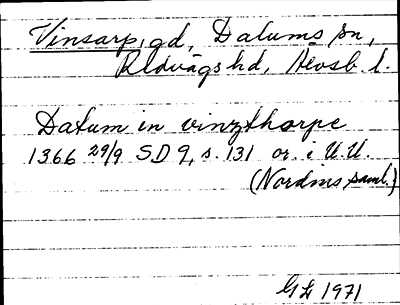 Vinsarp, gd, Dalums sn,
Redvägs hd, Älvsb. l.
Datum in vinzthorpe
1366 29/9 SD 9, s. 131 or. i U.U.
(Nordins saml.)
GL 1971